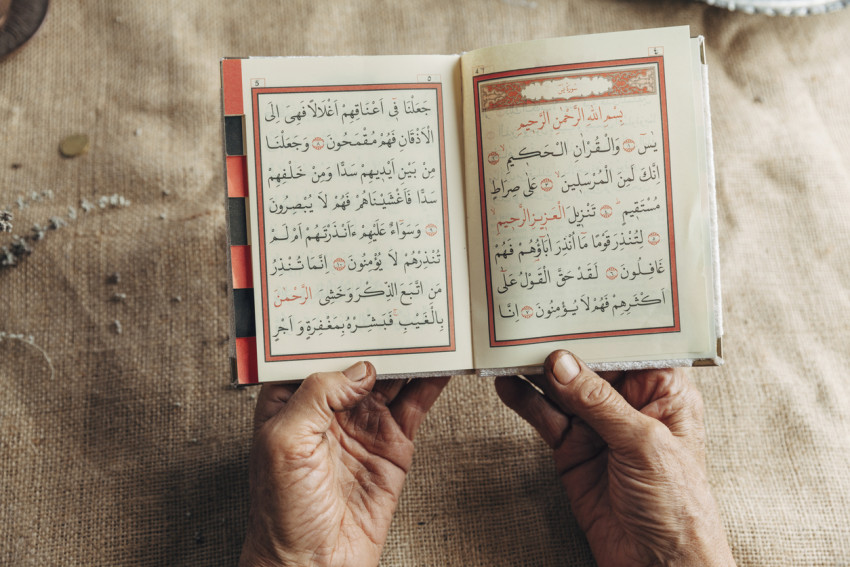 ٤
سورة يس
بِسْمِ اللهِ الرَّحْمٰنِ الرَّحِيمِ
يٰسٓ ۝١ وَالْقُرْاٰنِ الْحَكِيمِ ۝٢
اِنَّكَ لَمِنَ الْمُرْسَلِينَ ۝٣ عَلٰى صِرَاطٍ
مُسْتَقِيمٍ ۝٤ تَنْزِيلَ الْعَزِيزِ الرَّحِيمِ ۝٥
لِتُنْذِرَ قَوْمًا مَا اُنْذِرَ اٰبَاؤُهُمْ فَهُمْ
غَافِلُونَ ۝٦ لَقَدْ حَقَّ الْقَوْلُ عَلٰى
اَكْثَرِهِمْ فَهُمْ لَا يُؤْمِنُونَ ۝٧ اِنَّا
5 ٥
جَعَلْنَا فِٓى اَعْنَاقِهِمْ اَغْلَالًا فَهِىَ اِلَى
الْاَذْقَانِ فَهُمْ مُقْمَحُونَ ۝٨ وَجَعَلْنَا
مِنْ بَيْنِ اَيْدِيهِمْ سَدًّا وَمِنْ خَلْفِهِمْ
سَدًّا فَاَغْشَيْنَاهُمْ فَهُمْ لَا يُبْصِرُونَ
۝٩ وَسَوَآءٌ عَلَيْهِمْ ءَاَنْذَرْتَهُمْ اَمْ لَمْ
تُنْذِرْهُمْ لَا يُؤْمِنُونَ ۝١٠ اِنَّمَا تُنْذِرُ
مَنِ اتَّبَعَ الذِّكْرَ وَخَشِىَ الرَّحْمٰنَ
بِالْغَيْبِ فَبَشِّرْهُ بِمَغْفِرَةٍ وَ اَجْرٍ